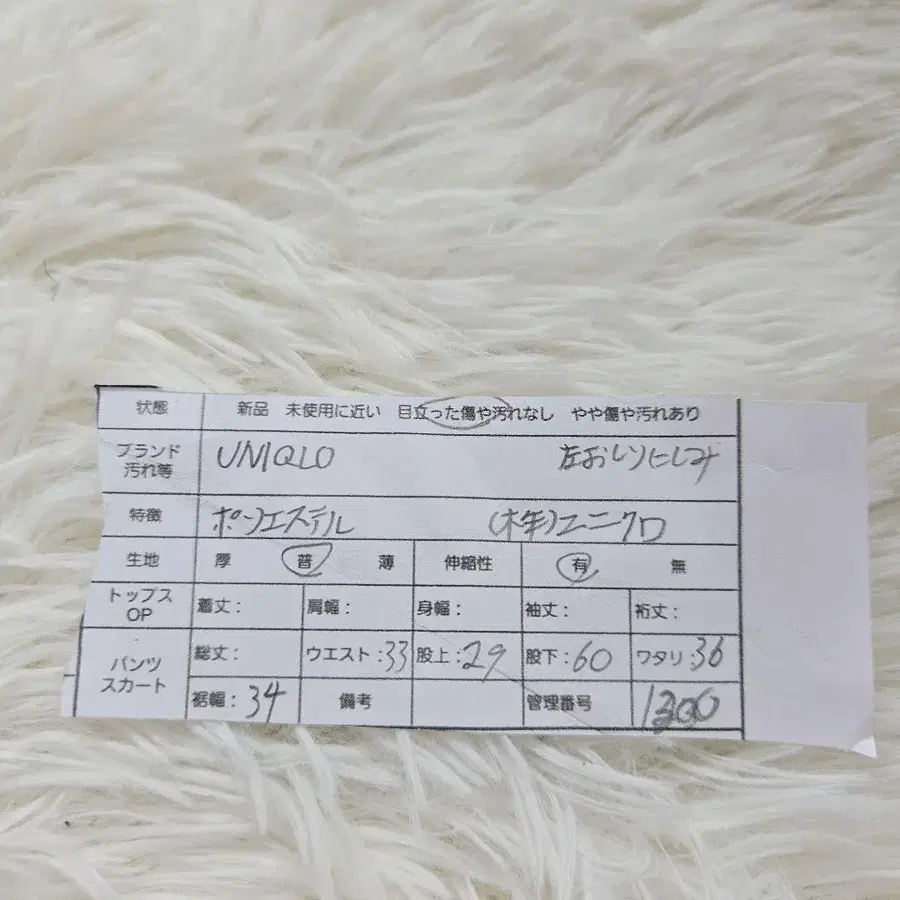 状態 新品 未使用に近い 目立った傷や汚れなし やや傷や汚れあり
ブランド 汚れ等 UNIQLO 左おしりにしみ
特徴 ポリエステル (株)ユニクロ
生地 厚 普 薄 伸縮性 有 無
トップス OP 着丈: 肩幅: 身幅: 袖丈: 裄丈:
パンツ スカート 総丈: ウエスト:33 股上:29 股下:60 ワタリ:36
裾幅:34 備考 管理番号 1300